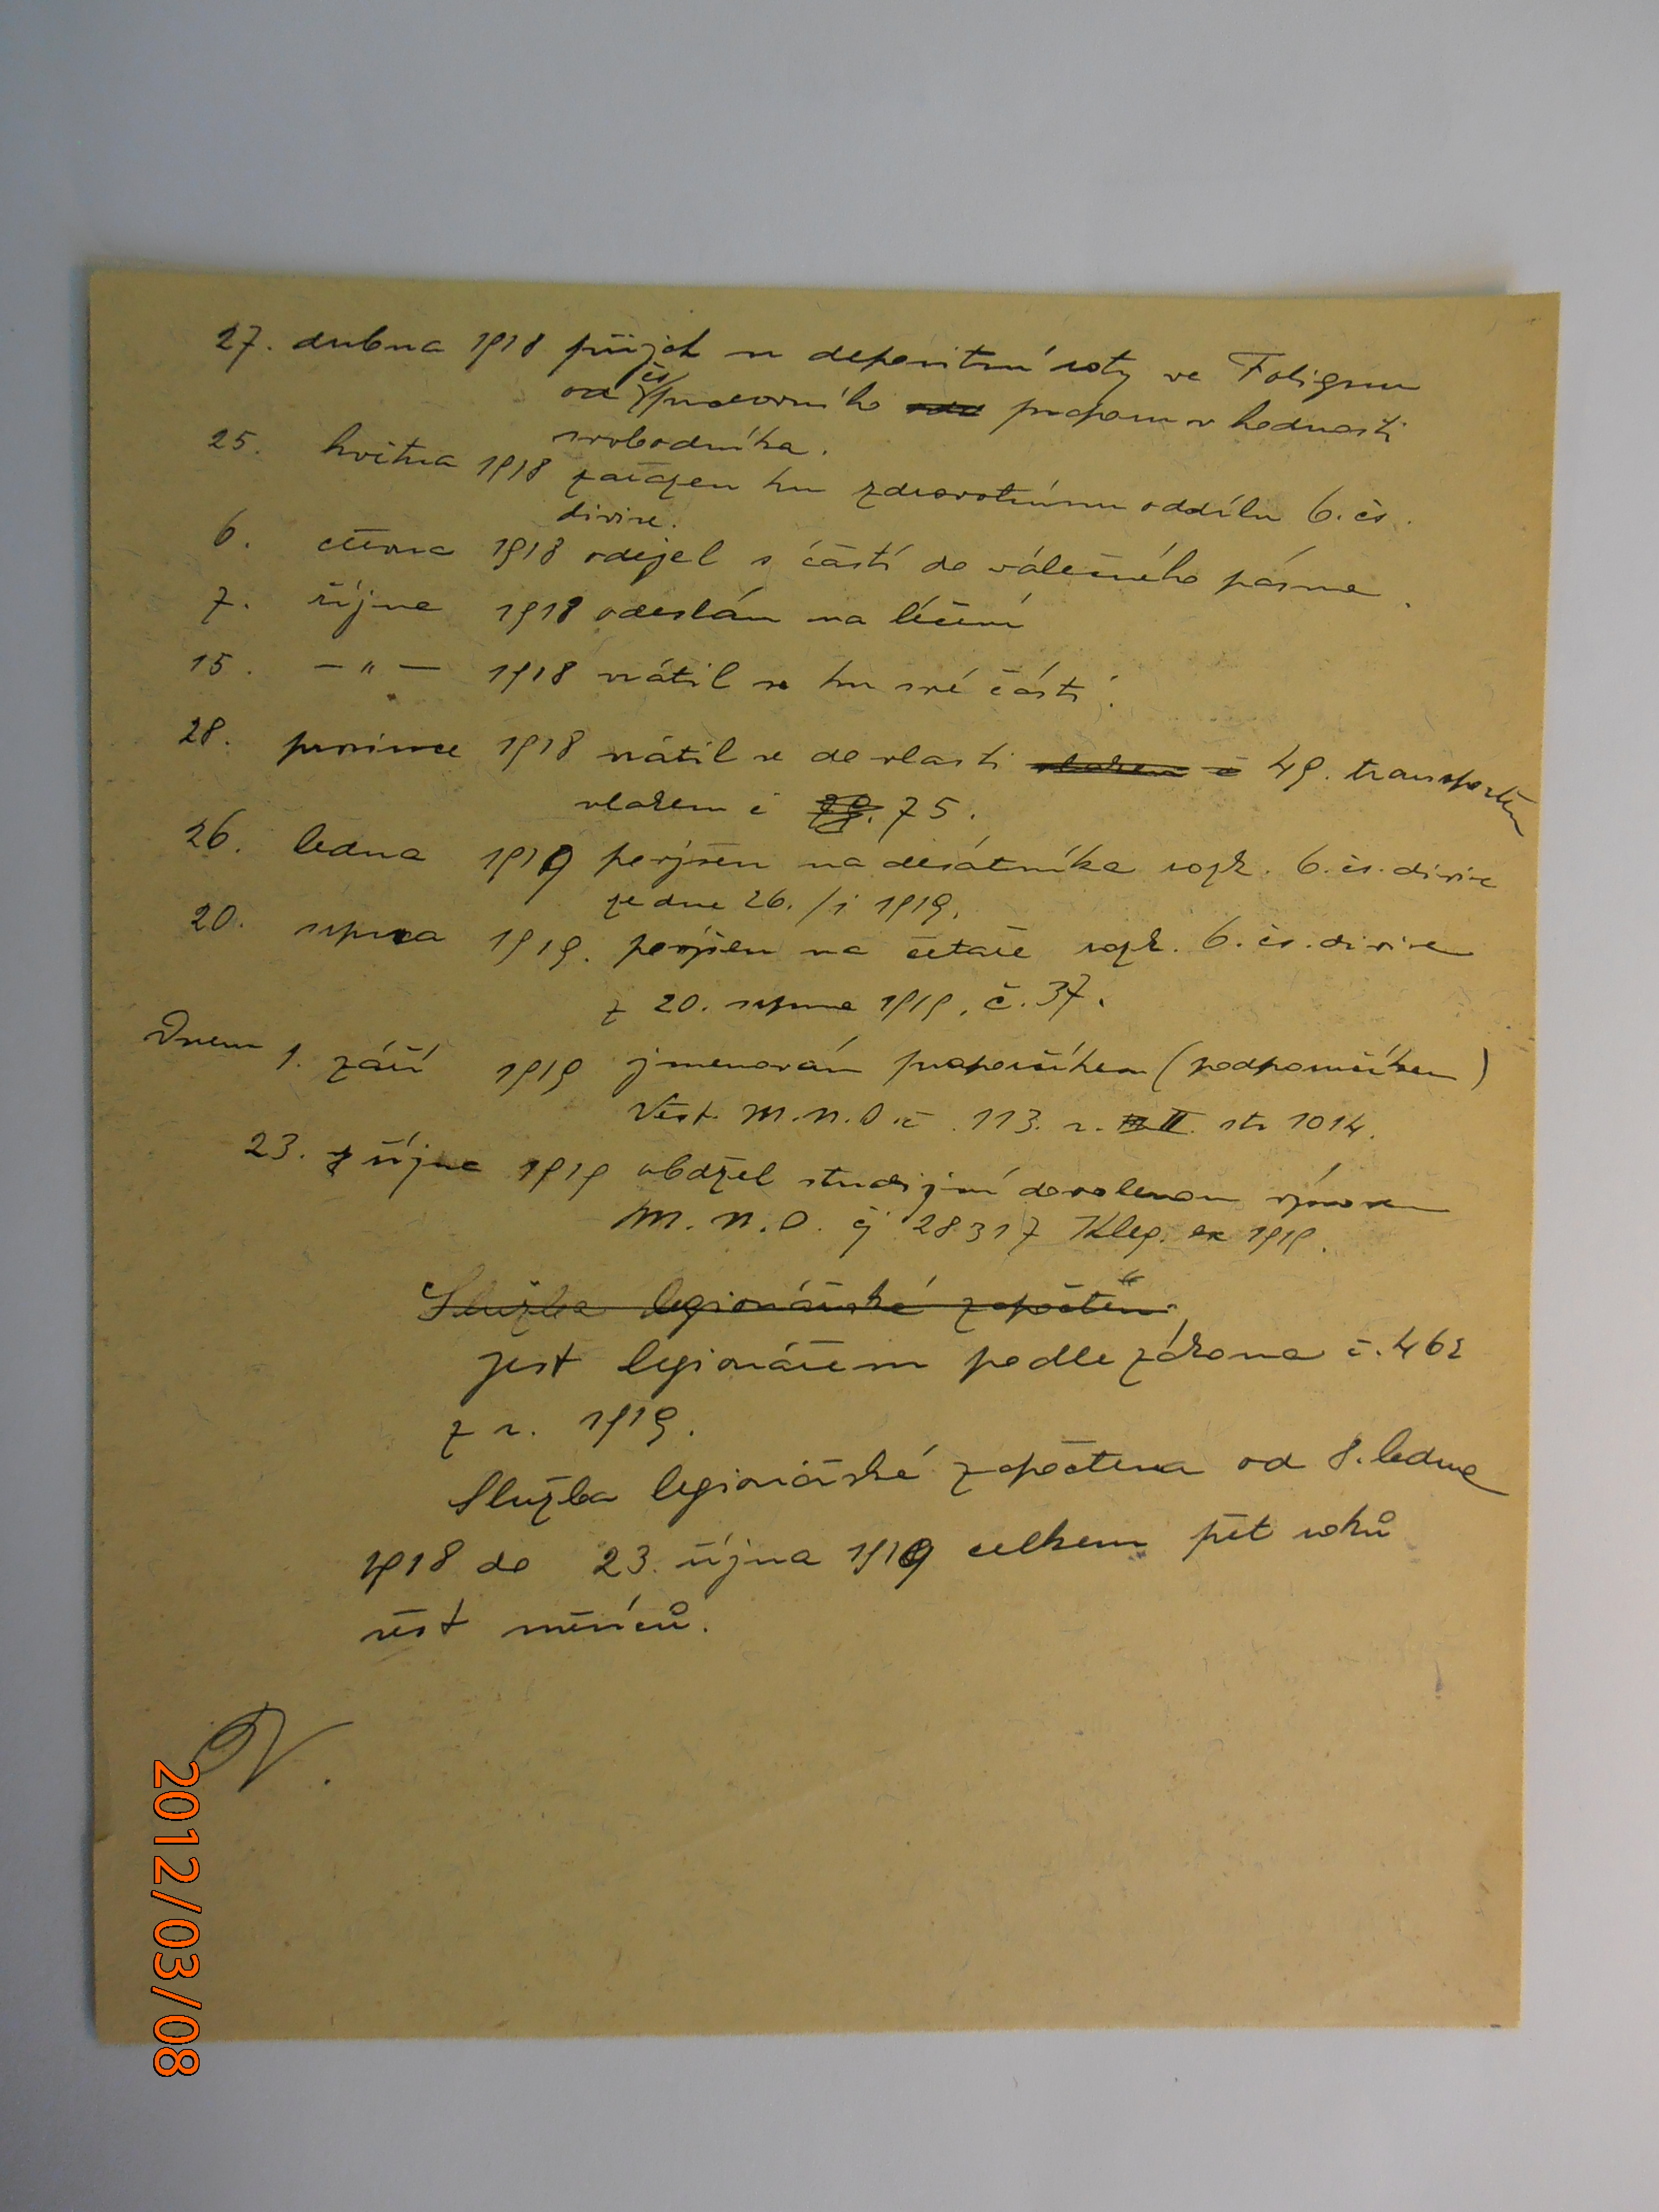 27. dubna 1918 přijat u depositní roty ve Folignu
od čs pracovního praporu v hodnosti
svobodníka.
25. května 1918 zařazen ku zdravotnímu oddílu 6. čs.
divise.
6. června 1918 odejel s částí do válečného pásma.
7. října 1918 odeslán na léčení
15. — " — 1918 vrátil se ku své části.
28. prosince 1918 vrátil se do vlasti 49. transportem
vlakem č 75.
26. ledna 1919 povýšen na desátníka rozk. 6. čs. divise
ze dne 26./i 1919.
20. srpna 1919. povýšen na četaře rozk. 6. čs. divise
z 20. srpna 1919, č. 37.
Dnem 1. září 1919 jmenován praporčíkem (podporučíkem)
Věst. M.N.O. č. 113. r. II. str 1014.
23. října 1919 obdržel studijní dovolenou výnosem
M.N.O. čj 28317 Kleg. 1919.
Služba legionářská započten
jest legionářem podle zákona č. 462
z r. 1919.
Služba legionářská započtena od 8. ledna
1918 do 23. října 1919 celkem pět roků
šest měsíců.
2012/03/08